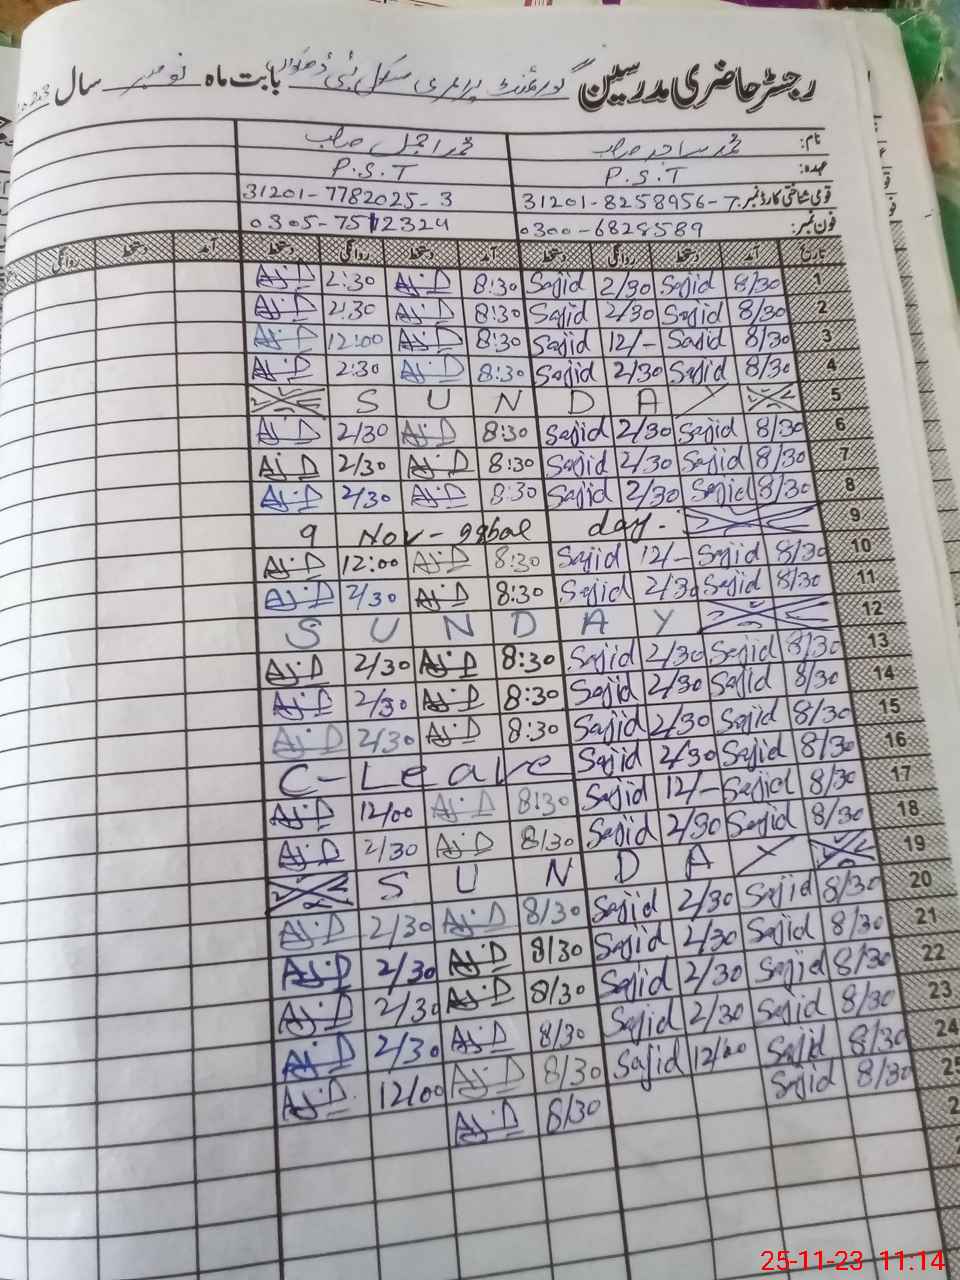 رجسٹر حاضری مدرسین گورنمنٹ پرائمری سکول بابت ماہ نومبر سال
نام: محمد ساجد صاحب محمد اجمل صاحب
عہدہ: P.S.T P.S.T
قومی شناختی کارڈ نمبر: 31201-8258956-7 31201-7782025-3
فون نمبر: 0300-6828589 0305-7512324
تاریخ آمد دستخط روانگی دستخط آمد دستخط روانگی دستخط آمد دستخط روانگی
1 8/30 Sajid 2/30 Sajid 8:30 2:30
2 8/30 Sajid 2/30 Sajid 8:30 2:30
3 8/30 Sajid 12/- Sajid 8:30 12:00
4 8/30 Sajid 2/30 Sajid 8:30 2:30
5 S U N D A Y
6 8/30 Sajid 2/30 Sajid 8:30 2/30
7 8/30 Sajid 2/30 Sajid 8:30 2/30
8 8/30 Sajid 2/30 Sajid 8:30 2/30
9 9 Nov - Iqbal day.
10 8/30 Sajid 12/- Sajid 8:30 12:00
11 8/30 Sajid 2/30 Sajid 8:30 2/30
12 S U N D A Y
13 8/30 Sajid 2/30 Sajid 8:30 2/30
14 8/30 Sajid 2/30 Sajid 8:30 2/30
15 8/30 Sajid 2/30 Sajid 8:30 2/30
16 8/30 Sajid 2/30 Sajid C-Leave
17 8/30 Sajid 12/- Sajid 8:30 12/00
18 8/30 Sajid 2/30 Sajid 8/30 2/30
19 S U N D A Y
20 8/30 Sajid 2/30 Sajid 8/30 2/30
21 8/30 Sajid 2/30 Sajid 8/30 2/30
22 8/30 Sajid 2/30 Sajid 8/30 2/30
23 8/30 Sajid 2/30 Sajid 8/30 2/30
24 8/30 Sajid 12/00 Sajid 8/30 12/00
25 8/30 Sajid 8/30
25-11-23 11:14